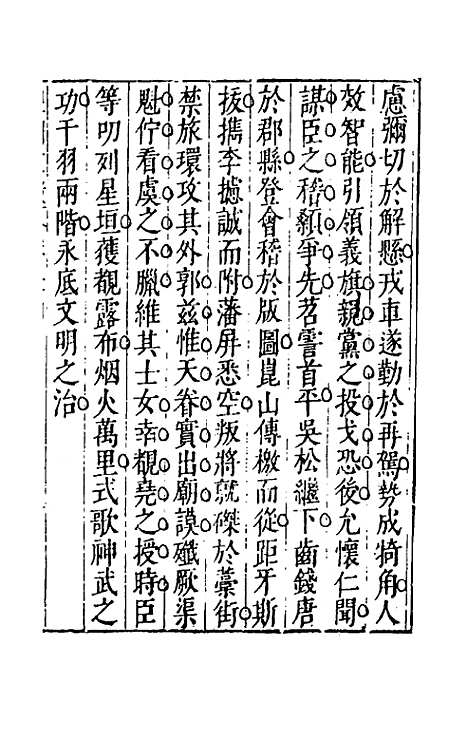 慮彌切於解懸戎車遂勤於再駕勢成犄角人
效智能引領義旗親黨之投戈恐後允懷仁聞
謀臣之稽顙爭先苕霅首平吳松繼下齒錢唐
於郡縣登會稽於版圖崑山傳檄而從距牙斯
拔擕李攄誠而附藩屏悉空叛將就磔於藁街
禁旅環攻其外郭兹惟天眷實出廟謨殲厥渠
魁佇看虞之不臘維其士女幸覩堯之授時臣
等叨列星垣獲覩露布烟火萬里式歌神武之
功干羽兩階永底文明之治